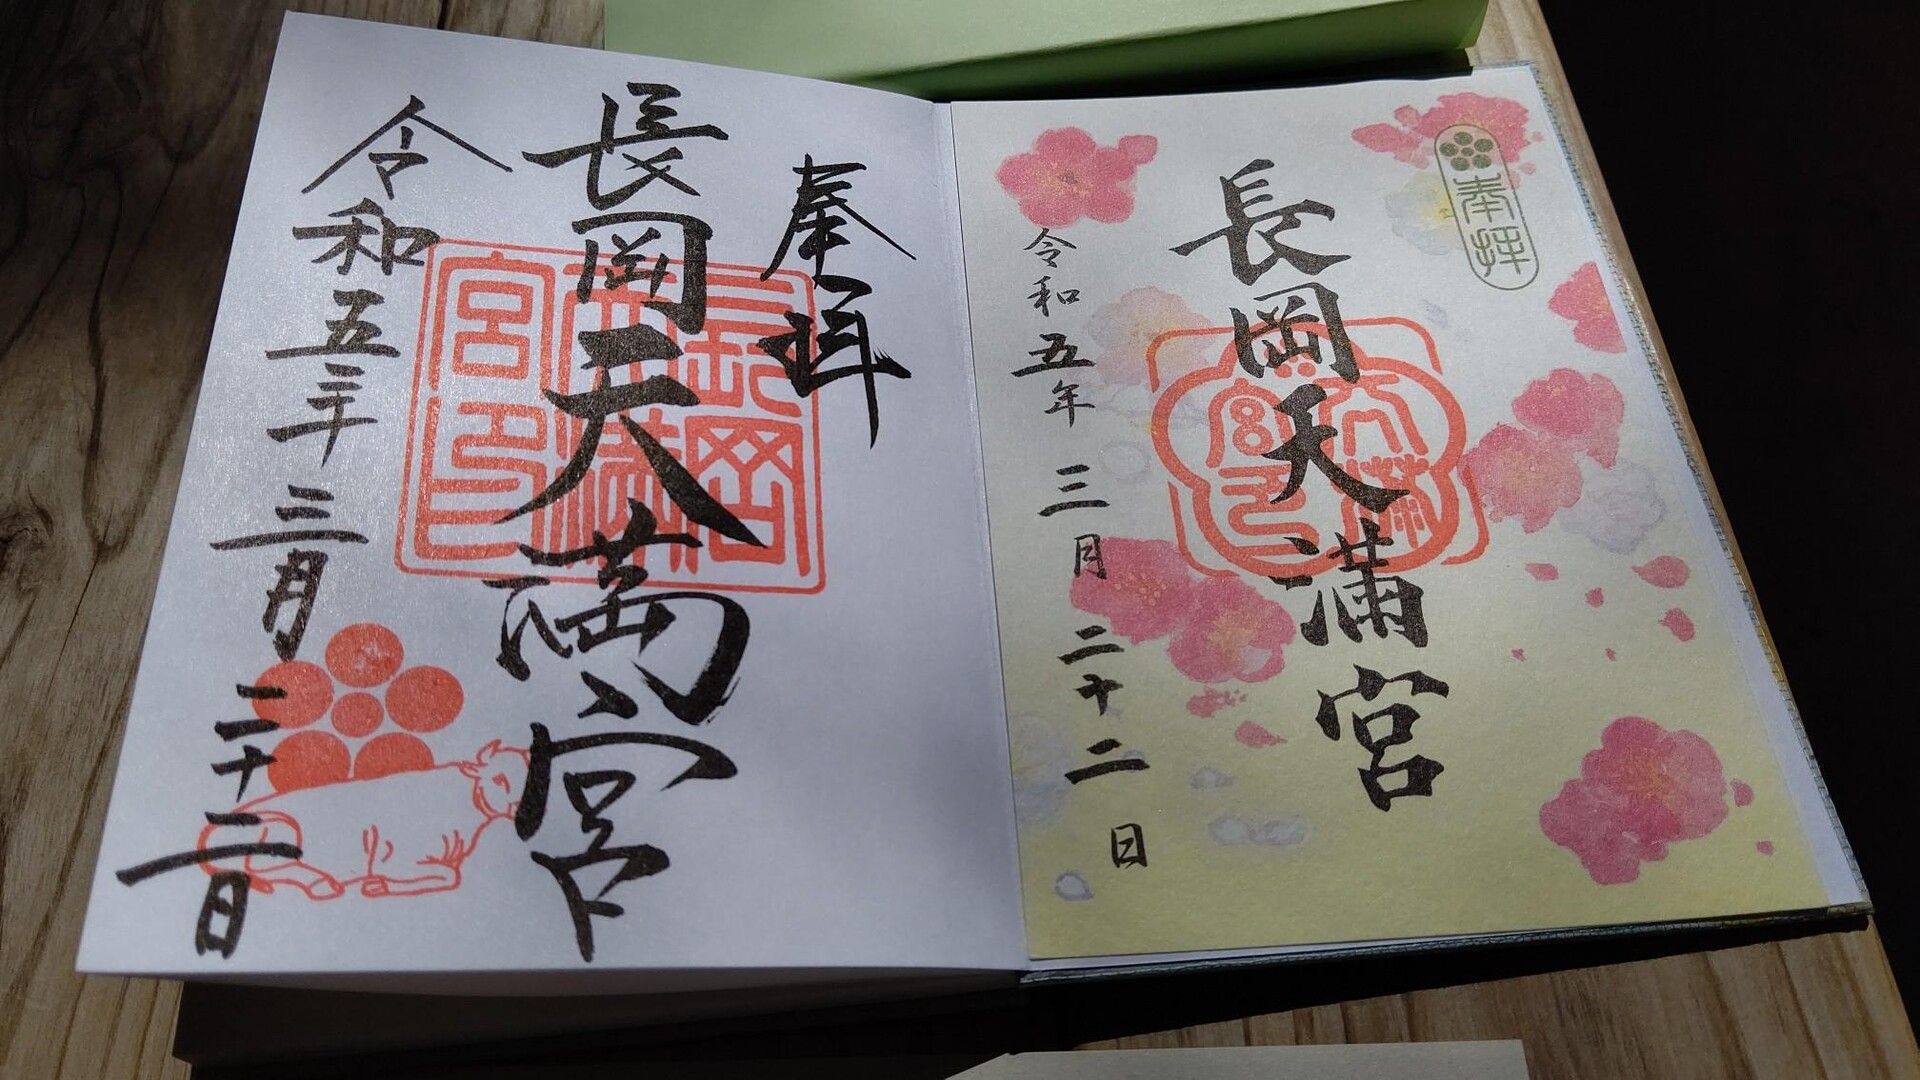 奉拝
長岡天満宮
天満
宮印
令和五年三月二十二日
奉拝
長岡天満宮
長岡
天満
宮印
令和五年三月二十二日